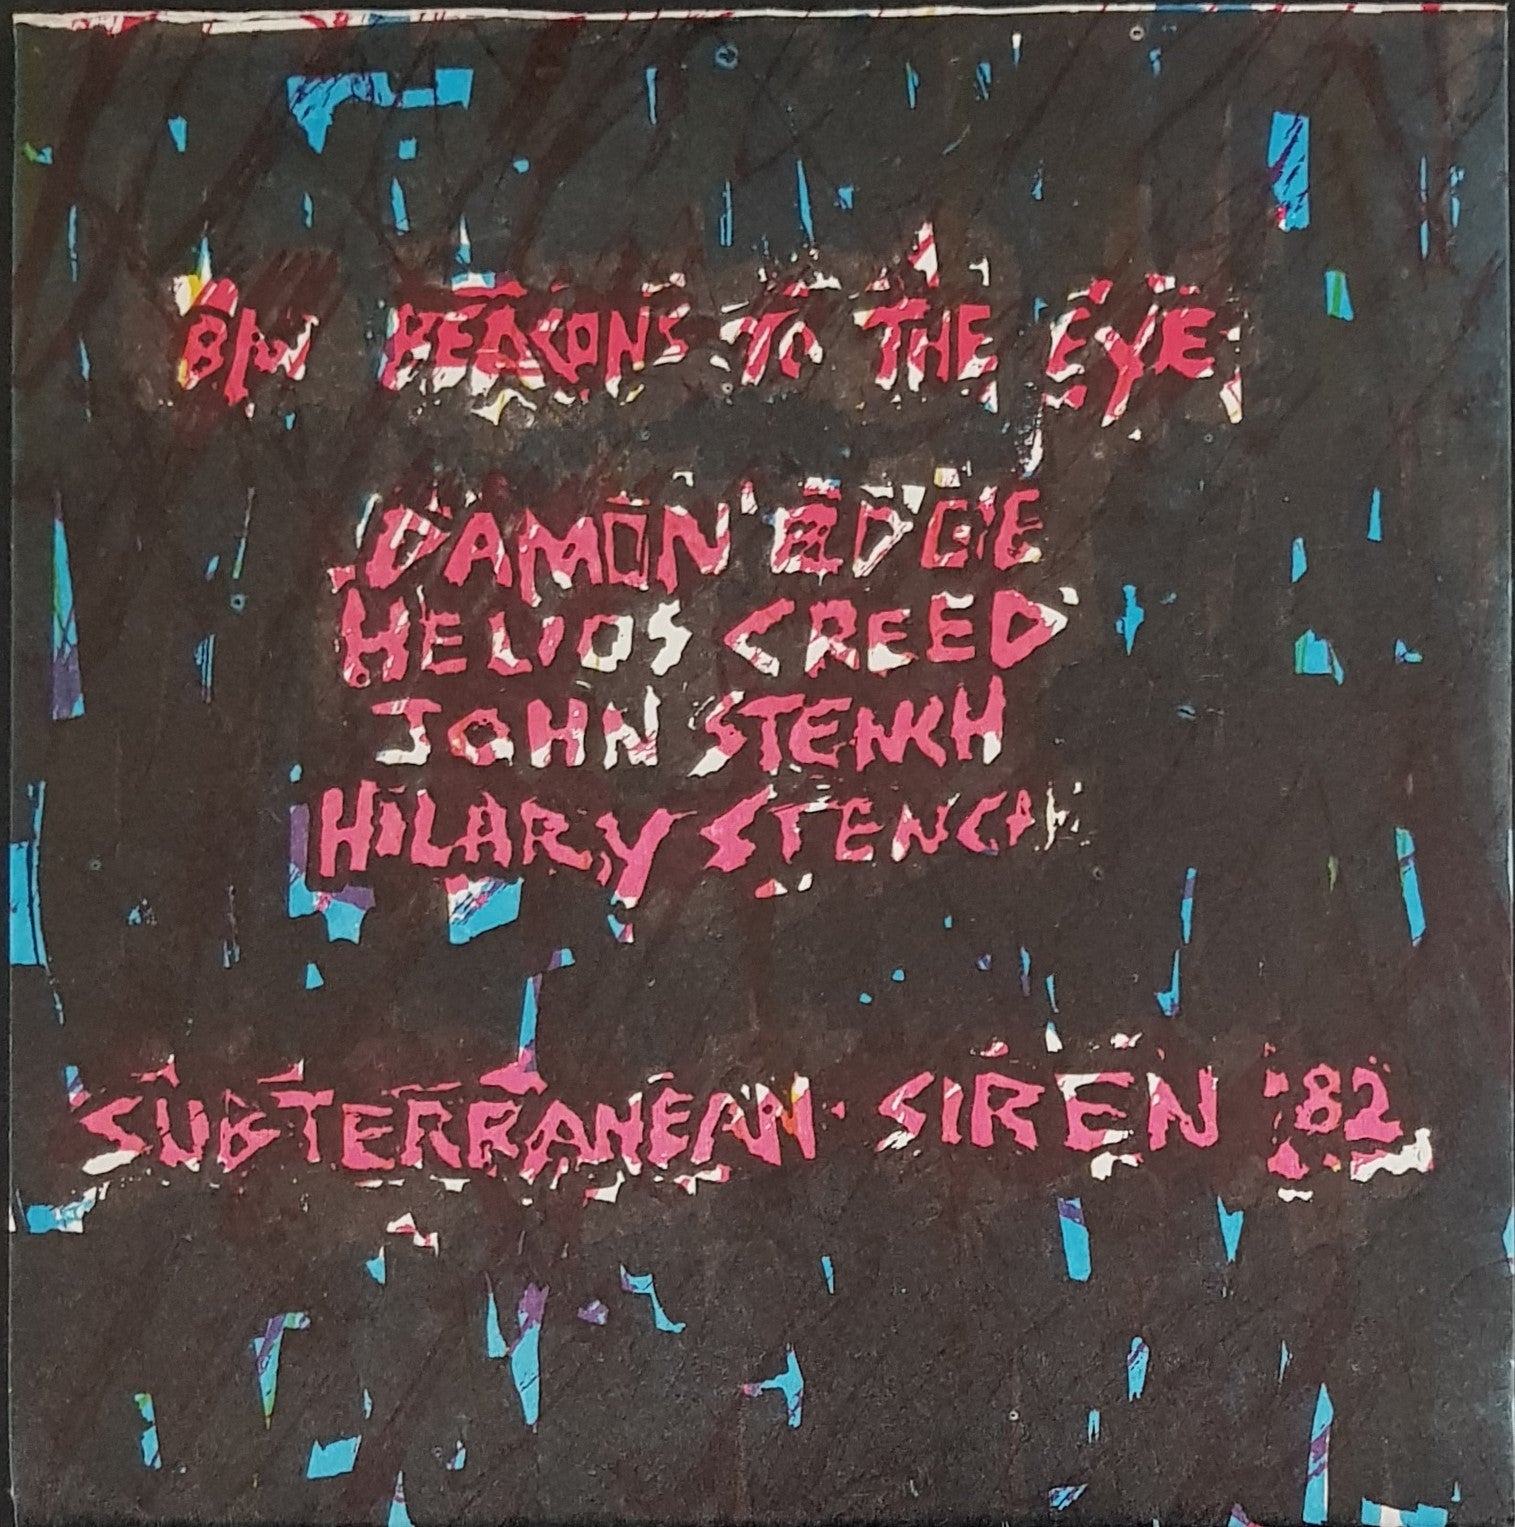 B/W BEACONS TO THE EYE
DAMON EDGE
HELIOS CREED
JOHN STENCH
HILARY STENCH
SUBTERRANEAN SIREN '82